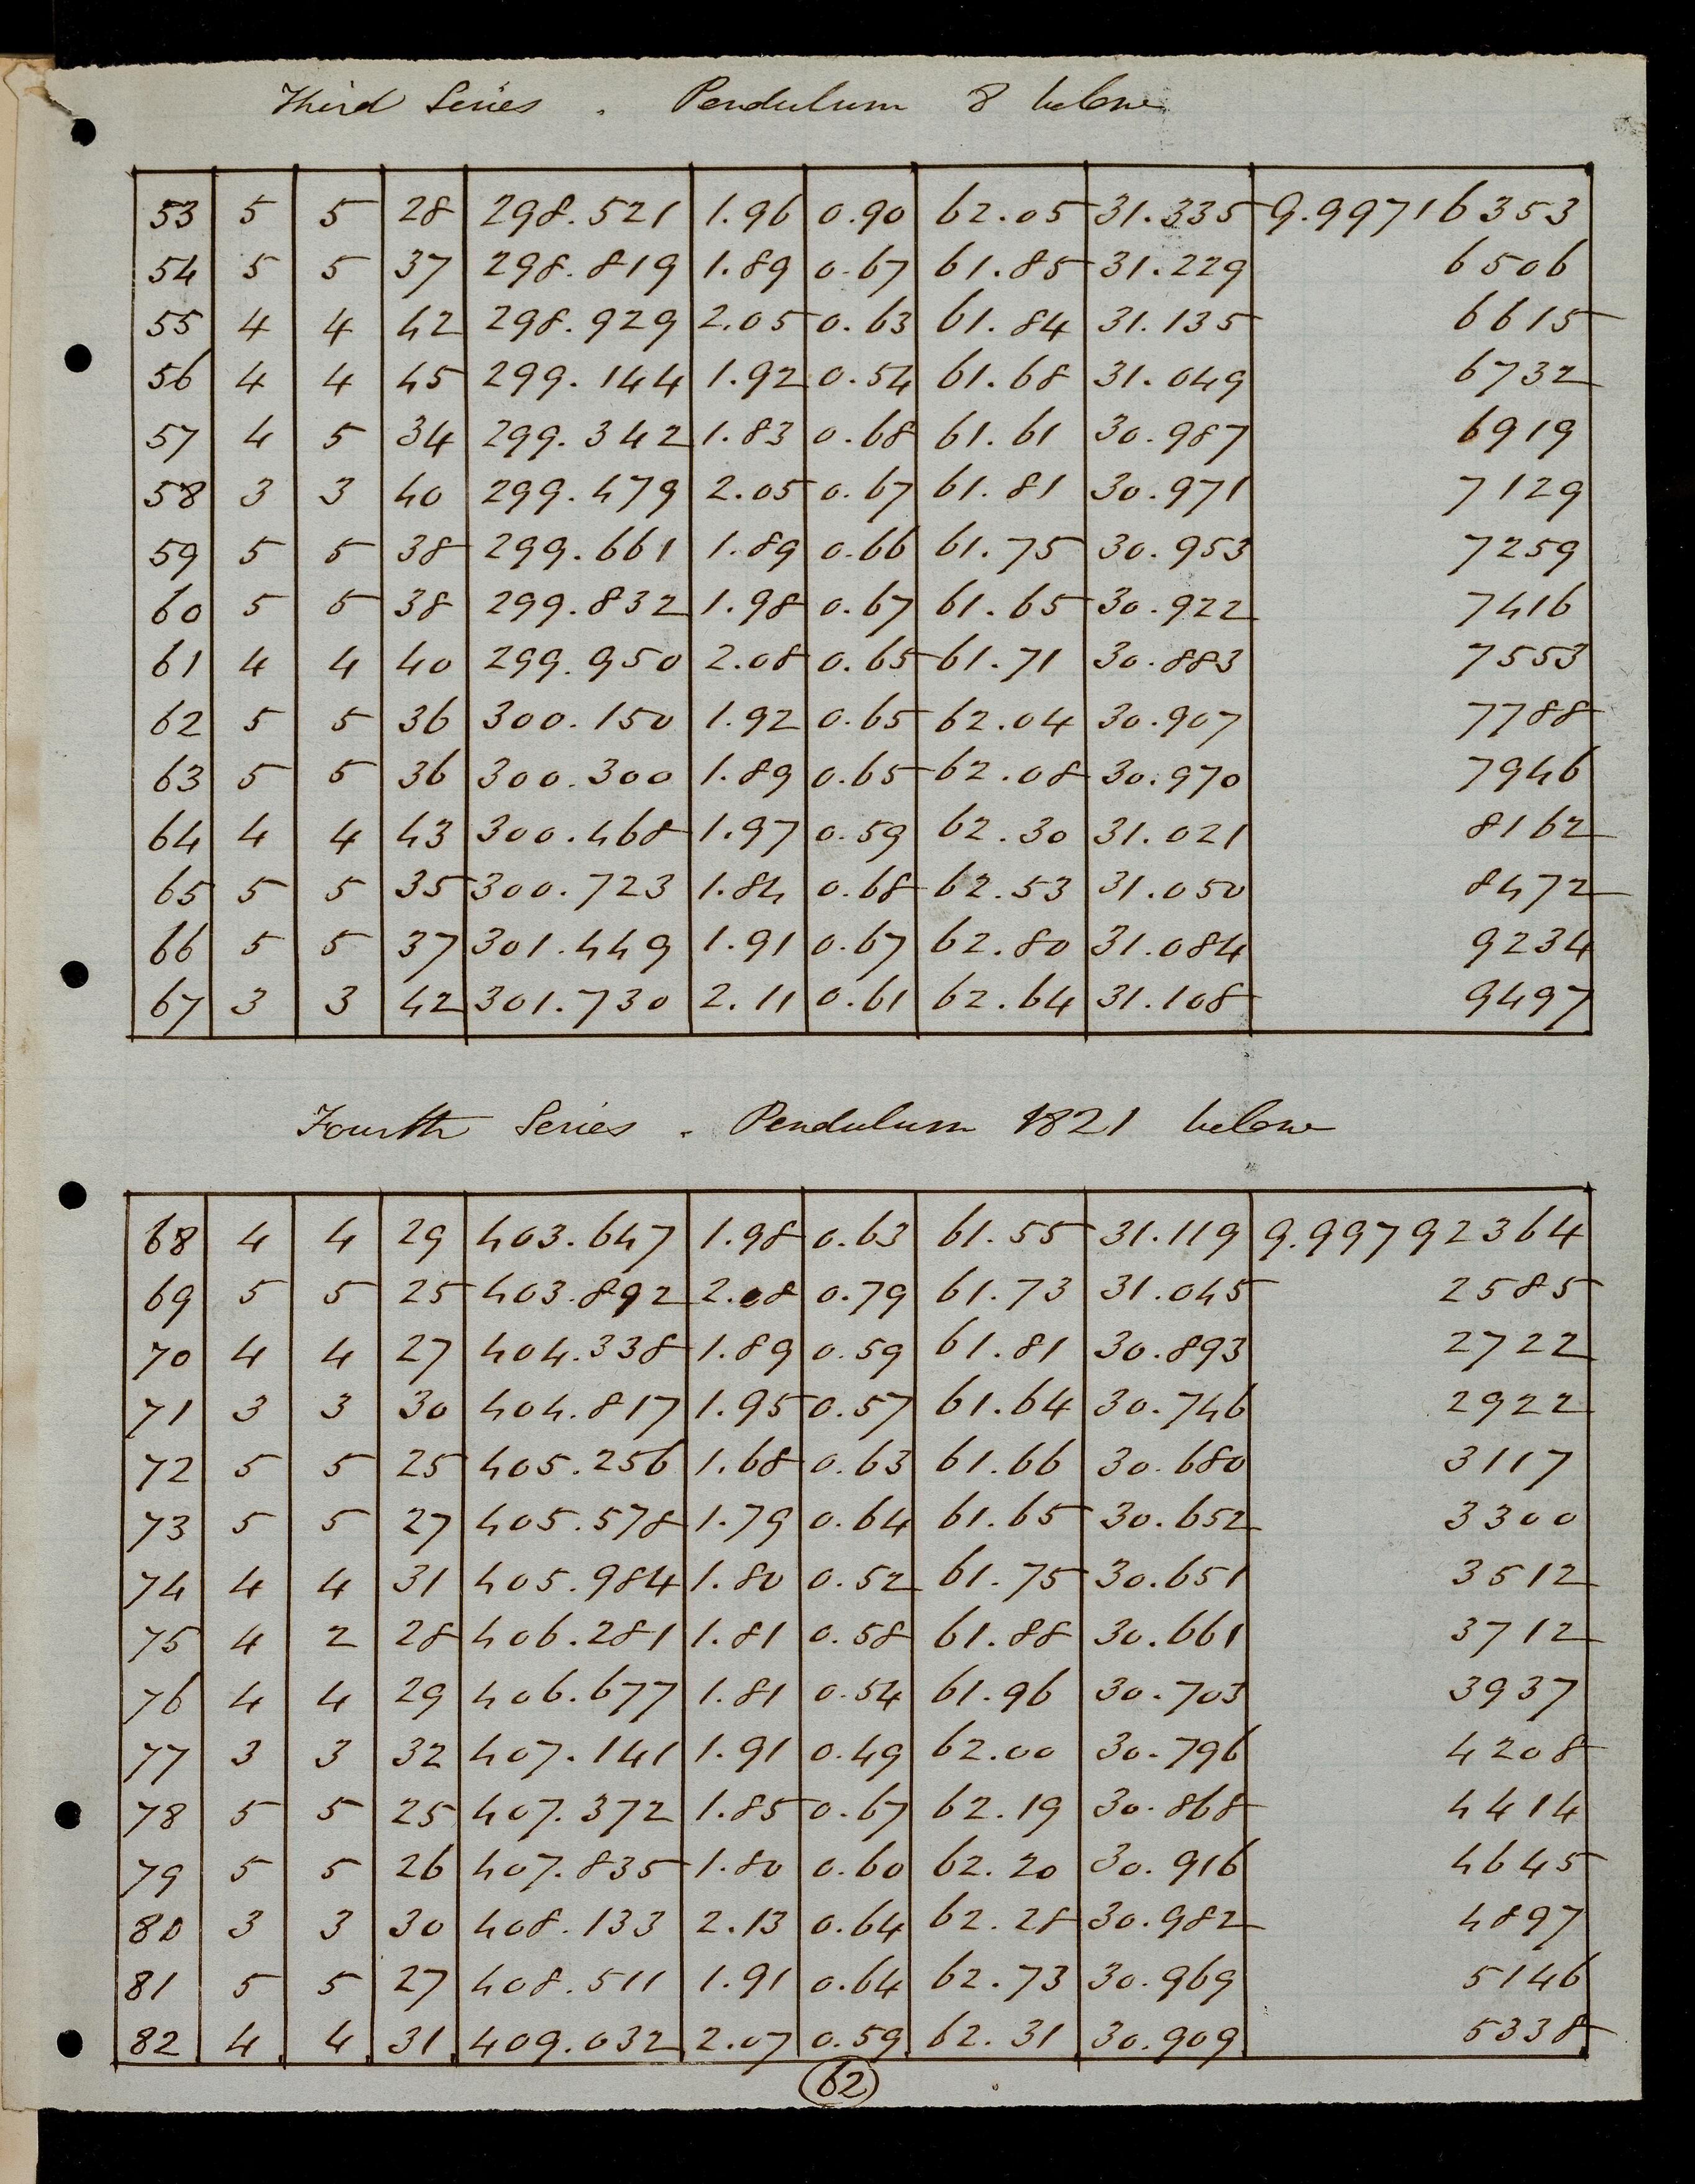 Third Series . Pendulum 8 below
53 5 5 28 298.521 1.96 0.90 62.05 31.335 9.99716353
54 5 5 37 298.819 1.89 0.67 61.85 31.229 6506
55 4 4 42 298.929 2.05 0.63 61.84 31.135 6615
56 4 4 45 299.144 1.92 0.54 61.68 31.049 6732
57 4 5 34 299.342 1.83 0.68 61.61 30.987 6919
58 3 3 40 299.479 2.05 0.67 61.81 30.971 7129
59 5 5 38 299.661 1.89 0.66 61.75 30.953 7259
60 5 5 38 299.832 1.98 0.67 61.65 30.922 7416
61 4 4 40 299.950 2.08 0.65 61.71 30.883 7553
62 5 5 36 300.150 1.92 0.65 62.04 30.907 7788
63 5 5 36 300.300 1.89 0.65 62.08 30.970 7946
64 4 4 43 300.468 1.97 0.59 62.30 31.021 8162
65 5 5 35 300.723 1.84 0.68 62.53 31.050 8472
66 5 5 37 301.449 1.91 0.67 62.80 31.084 9234
67 3 3 42 301.730 2.11 0.61 62.64 31.108 9497
Fourth Series . Pendulum 1821 below
68 4 4 29 403.647 1.98 0.63 61.55 31.119 9.99792364
69 5 5 25 403.892 2.08 0.79 61.73 31.045 2585
70 4 4 27 404.338 1.89 0.59 61.81 30.893 2722
71 3 3 30 404.817 1.95 0.57 61.64 30.746 2922
72 5 5 25 405.256 1.68 0.63 61.66 30.680 3117
73 5 5 27 405.578 1.79 0.64 61.65 30.652 3300
74 4 4 31 405.984 1.80 0.52 61.75 30.651 3512
75 4 2 28 406.281 1.81 0.58 61.88 30.661 3712
76 4 4 29 406.677 1.81 0.54 61.96 30.703 3937
77 3 3 32 407.141 1.91 0.49 62.00 30.796 4208
78 5 5 25 407.372 1.85 0.67 62.19 30.868 4414
79 5 5 26 407.835 1.80 0.60 62.20 30.916 4645
80 3 3 30 408.133 2.13 0.64 62.28 30.982 4897
81 5 5 27 408.511 1.91 0.64 62.73 30.969 5146
82 4 4 31 409.032 2.07 0.59 62.31 30.909 5338
62